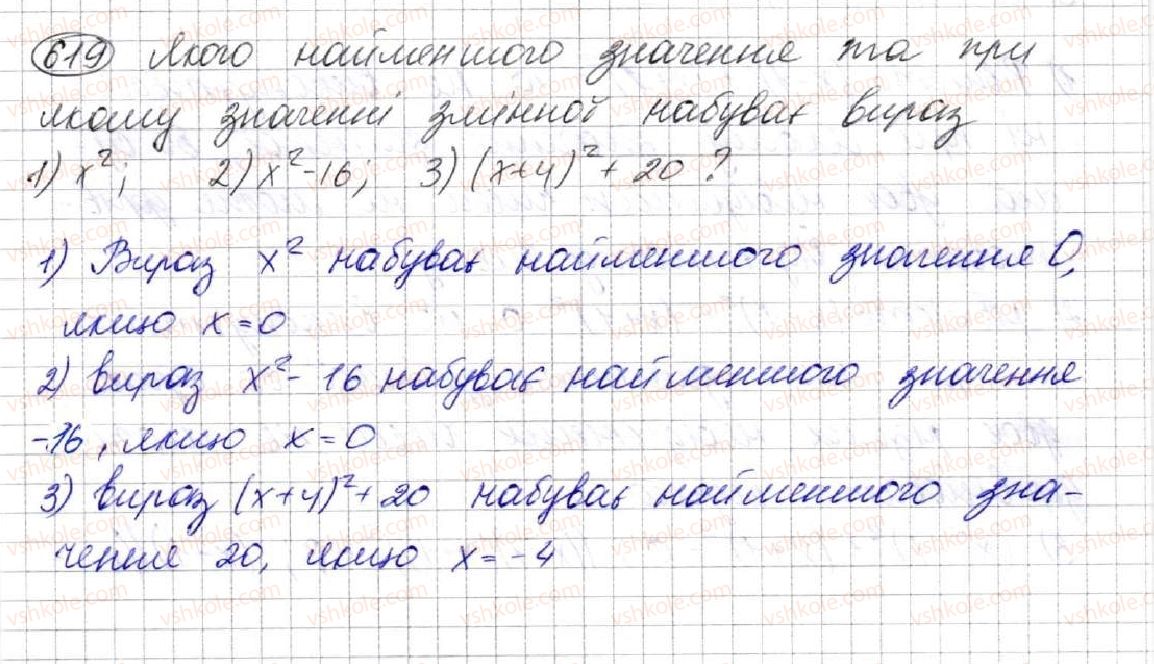 619 Якого найменшого значення та при
якому значенні змінної набуває вираз
1) x²; 2) x²-16; 3) (x+4)² + 20 ?
1) Вираз x² набуває найменшого значення 0,
якщо x=0
2) вираз x²- 16 набуває найменшого значення
-16, якщо x=0
3) вираз (x+4)²+20 набуває найменшого зна-
чення 20, якщо x=-4